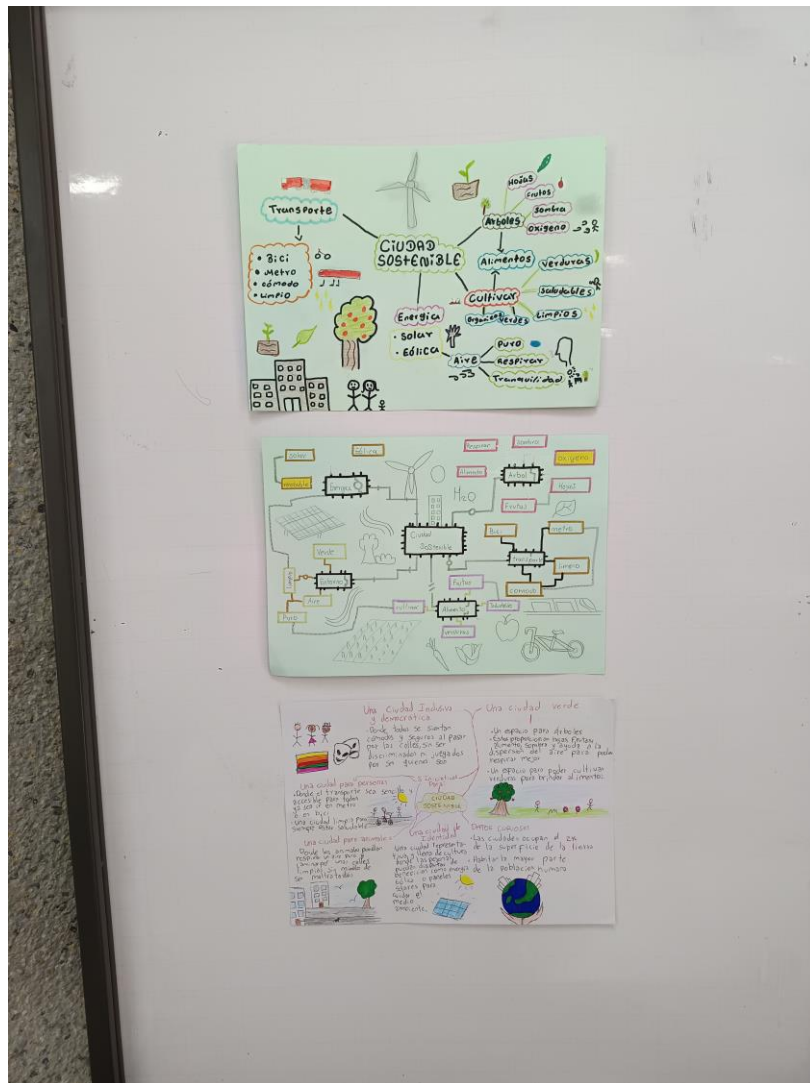 Transporte
• Bici
• Metro
• cómodo
• Limpio
CIUDAD
SOSTENIBLE
Hojas
Frutos
Sombra
oxigeno
Árboles
Alimentos
Cultivar
organicos
verdes
verduras
saludables
Limpios
Energica
• Solar
• Eólica
Aire
Puro
Respirar
Tranquilidad
Solar
Eólica
Respirar
Sombra
oxigeno
Arbol
Hojas
Frutas
Alimento
H2O
Ciudad
Sostenible
Verde
Entorno
Limpio
Aire
Puro
Bici
metro
Transporte
Limpio
comodo
Frutas
cultivar
Alimento
Saludable
verduras
Una Ciudad Inclusiva
y democrática
• Donde todos se sientan
cómodos y seguros al pasar
por las calles, sin ser
discriminados ni juzgados
por ser quienes son
Una ciudad verde
• Un espacio para árboles
• Estos proporcionan hojas, frutos,
alimento, sombra y ayuda a la
dispersión del aire para poder
respirar mejor
• Un espacio para poder cultivar
verduras para brindar alimentos
Una ciudad para personas
• Donde el transporte sea sencillo y
accesible para todos
ya sea o en metro
o en bici
• Una ciudad limpia para
siempre estar saludable
CIUDAD
SOSTENIBLE
Una ciudad para animales
Donde los animales puedan
respirar aire puro y
caminar por unas calles
limpias sin miedo de
ser maltratados
Una ciudad de
Identidad
Una ciudad representa
tiva y llena de cultura
donde las personas
puedan disfrutar de
beneficios como energia
eólica o paneles
solares para
cuidar el
medio
ambiente.
DATOS CURIOSOS
• Las ciudades ocupan el 2%
de la superficie de la tierra
• Habitan la mayor parte
de la población humana